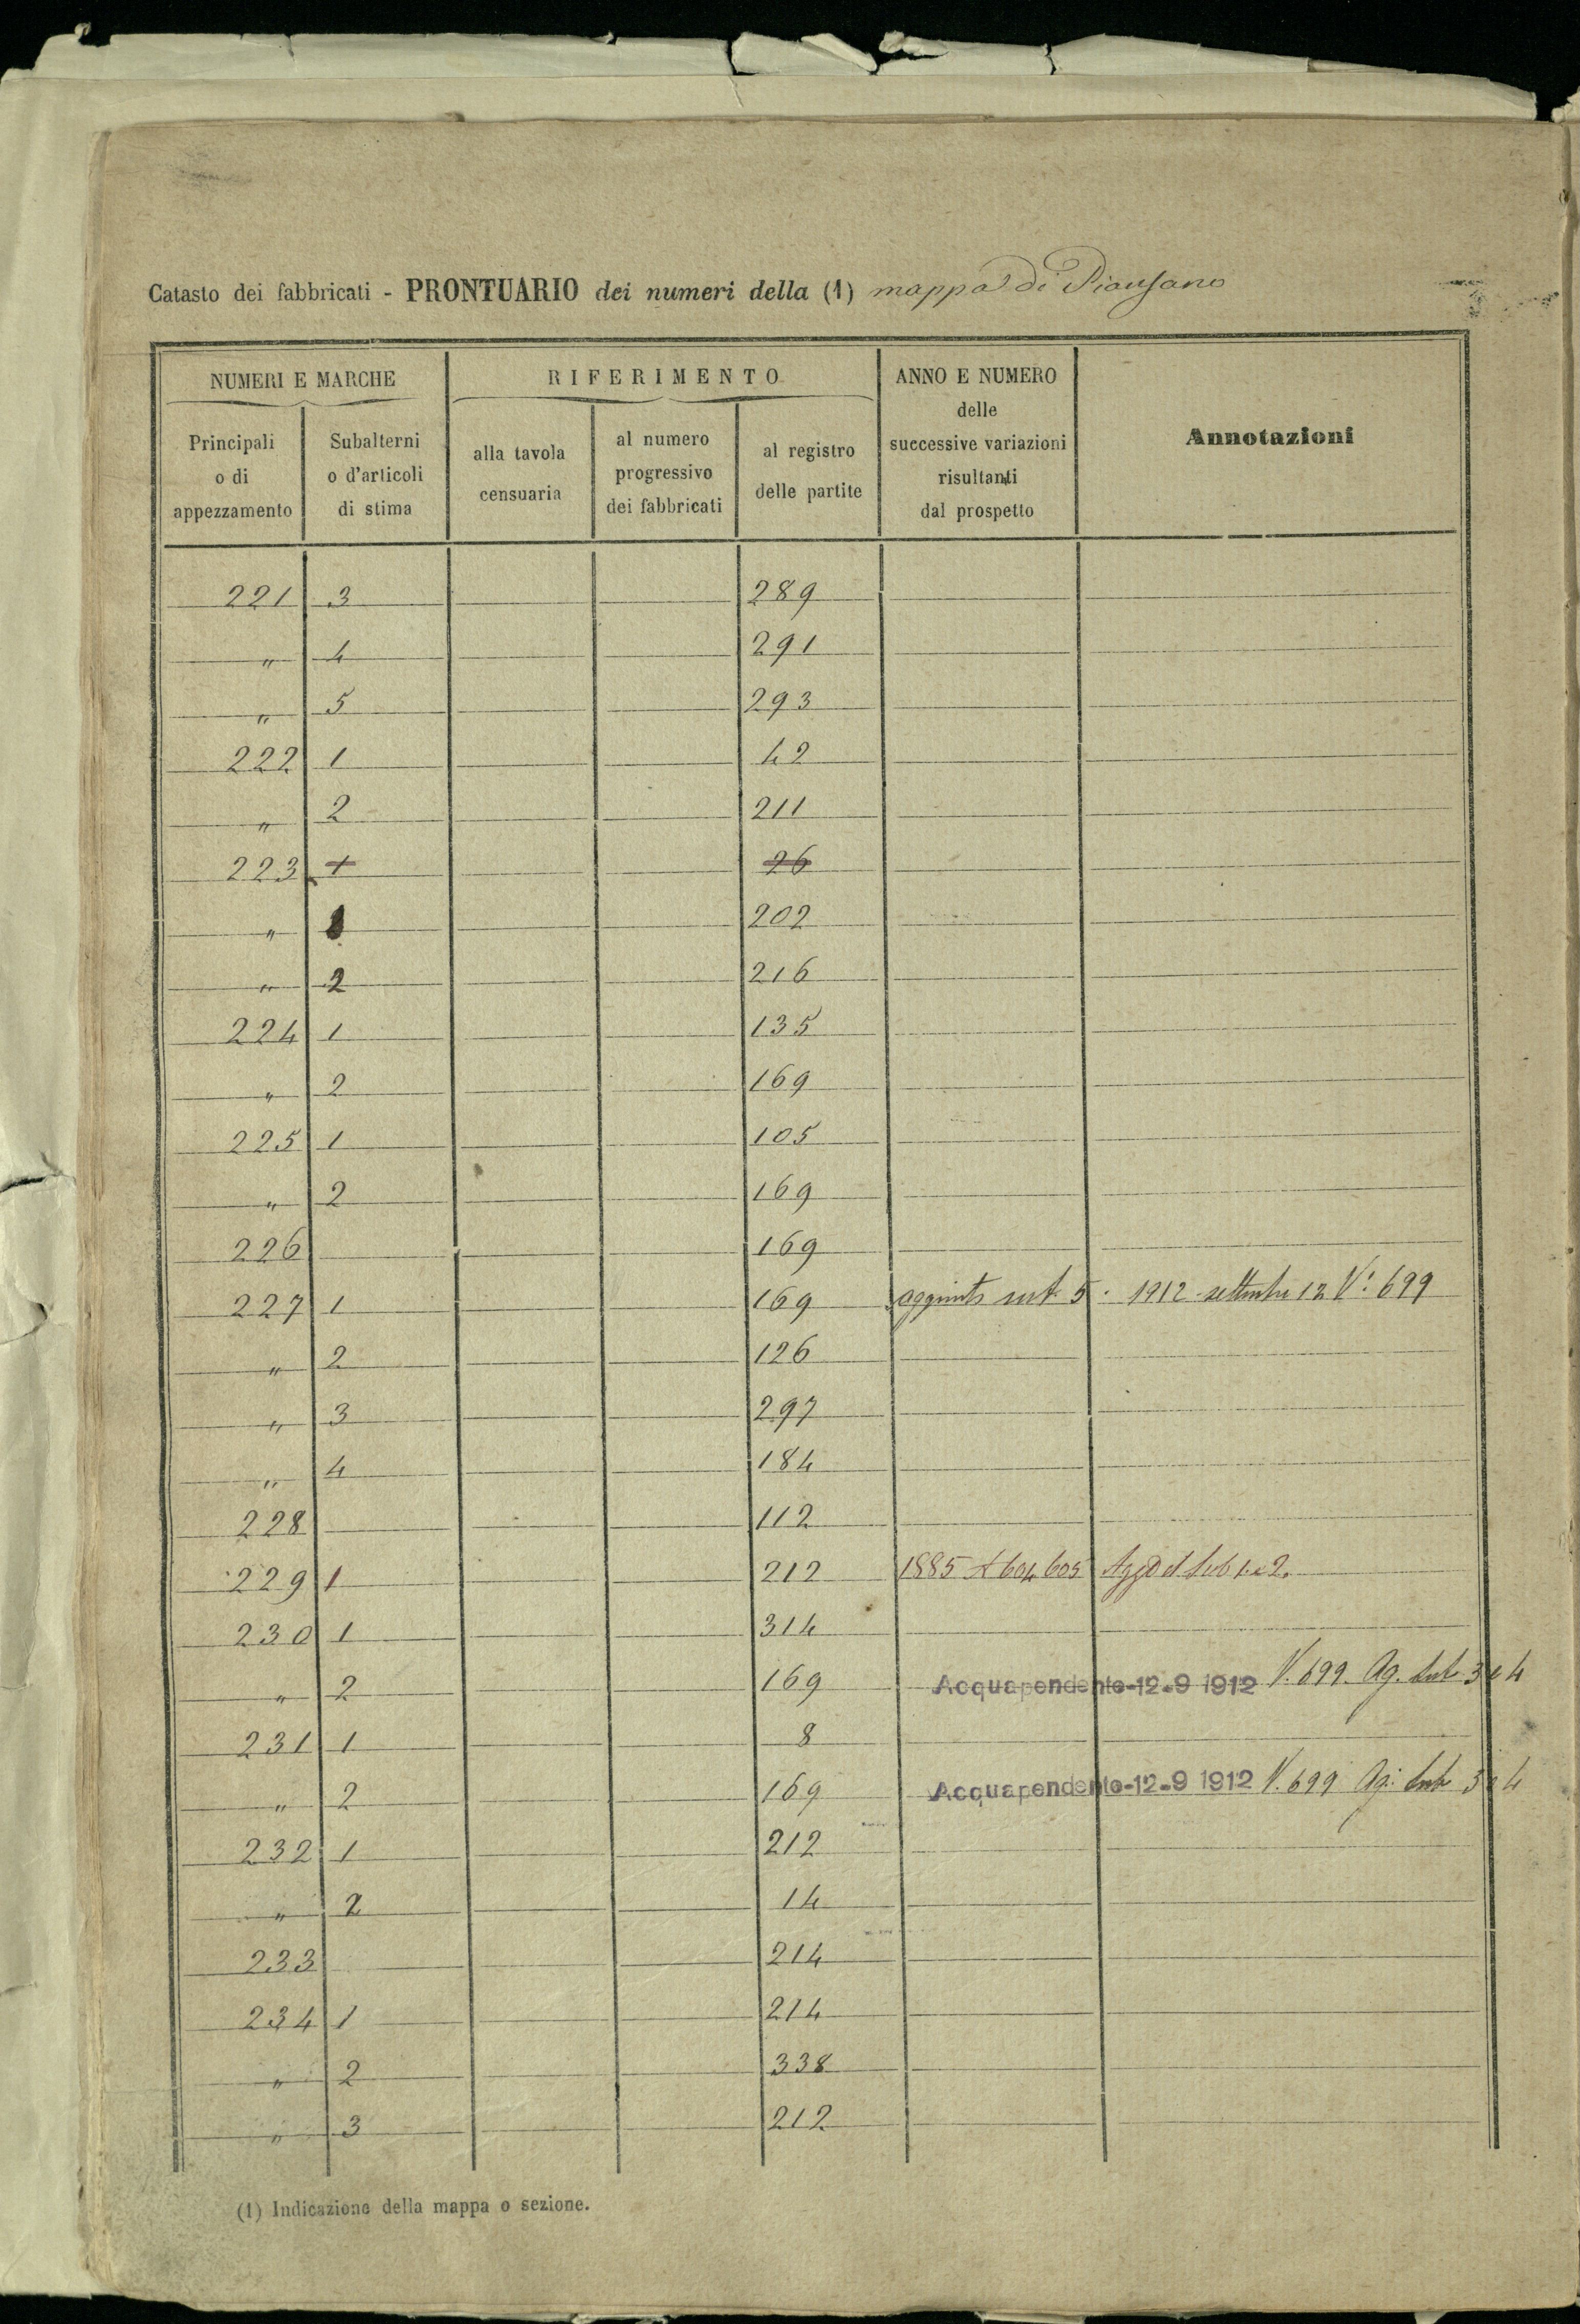 Catasto dei fabbricati - PRONTUARIO dei numeri della (1) mappa di Piansano
NUMERI E MARCHE
Principali
o di
appezzamento
Subalterni
o d'articoli
di stima
RIFERIMENTO
alla tavola
censuaria
al numero
progressivo
dei fabbricati
al registro
delle partite
ANNO E NUMERO
delle
successive variazioni
risultanti
dal prospetto
Annotazioni
221 3 289
" 4 291
" 5 293
222 1 42
" 2 211
223 1 26
" 1 202
" 2 216
224 1 135
" 2 169
225 1 105
" 2 169
226 169
227 1 169 aggiunto sub. 5. 1912 settembre 12 V. 699
" 2 126
" 3 297
" 4 184
228 112
229 1 212 1885 604 605 sub 1 e 2.
230 1 314
" 2 169 Acquapendente-12-9 1912 V. 699. Ag. sub 3 e 4
231 1 8
" 2 169 Acquapendente-12-9 1912 V. 699 Ag. sub 3 e 4
232 1 212
" 2 14
233 214
234 1 214
" 2 338
" 3 212
(1) Indicazione della mappa o sezione.